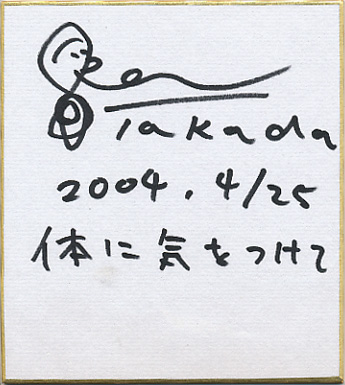 Takada
2004.4/25
体に気をつけて